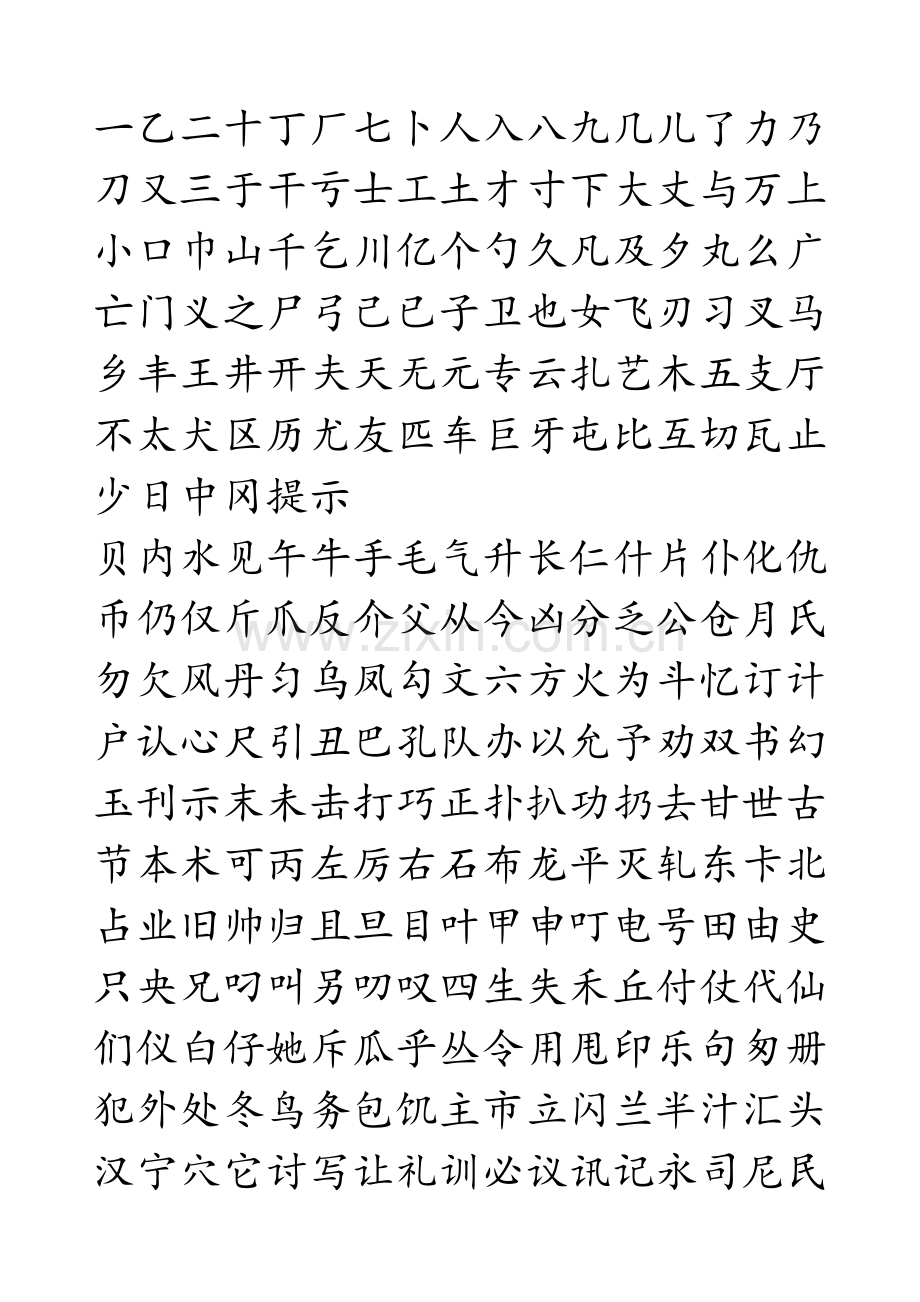 一乙二十丁厂七卜人入八九几儿了力乃
刀又三于干亏士工土才寸下大丈与万上
小口巾山千乞川亿个勺久凡及夕丸么广
亡门义之尸弓己已子卫也女飞刃习叉马
乡丰王井开夫天无元专云扎艺木五支厅
不太犬区历尤友匹车巨牙屯比互切瓦止
少日中冈提示
贝内水见午牛手毛气升长仁什片仆化仇
币仍仅斤爪反介父从今凶分乏公仓月氏
勿欠风丹匀乌凤勾文六方火为斗忆订计
户认心尺引丑巴孔队办以允予劝双书幻
玉刊示末未击打巧正扑扒功扔去甘世古
节本术可丙左厉右石布龙平灭轧东卡北
占业旧帅归且旦目叶甲申叮电号田由史
只央兄叼叫另叨叹四生失禾丘付仗代仙
们仪白仔她斥瓜乎丛令用甩印乐句匆册
犯外处冬鸟务包饥主市立闪兰半汁汇头
汉宁穴它讨写让礼训必议讯记永司尼民
www.zixin.com.cn